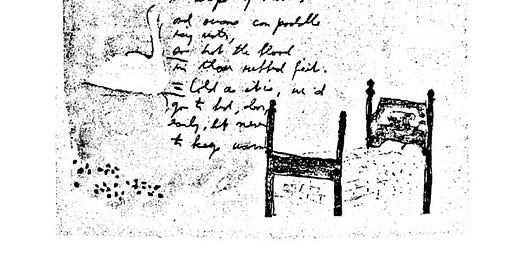 and swans can paddle
icy water,
so hot the blood
in those webbed feet.
= Cold as it is, we'd
go to bed, dear,
early, but never
to keep warm